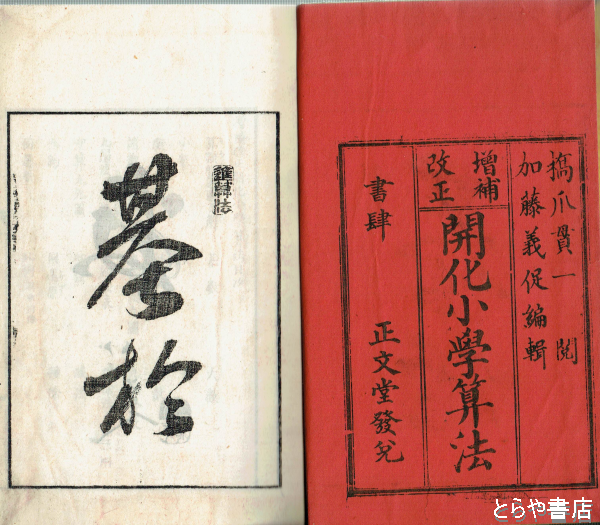 橋爪貫一閲
加藤義促編輯
増補
改正
開化小學算法
書肆 正文堂發兌
基於
とらや書店